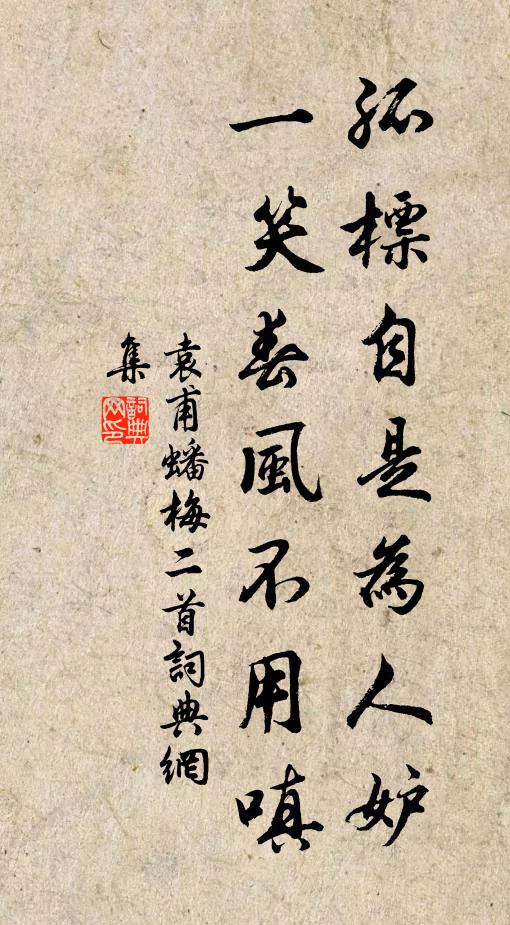 孤標自是為人妒
一笑春風不用嗔
袁甫蟠梅二首詞典網
集
詞典网印